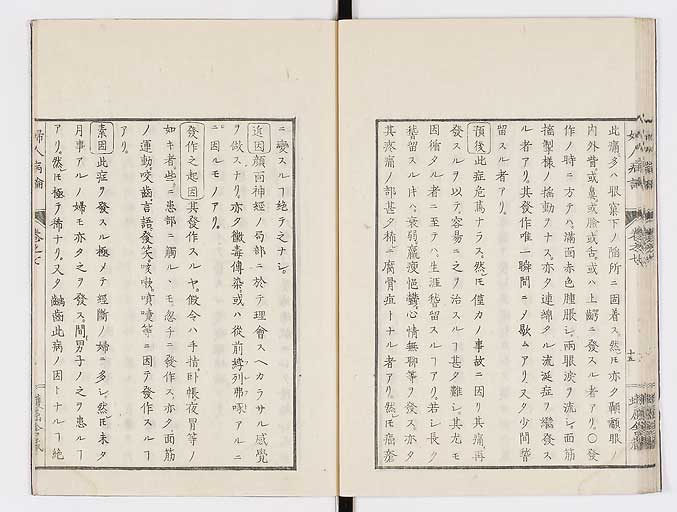 此痛多ハ眼窠下ノ陥所ニ固着ス然𪜈亦タ顳顬眼ノ
内外眥或鼻或臉或舌或ハ上齶ニ發スル者アリ〇發
作ノ時ニ方テハ満面赤色腫脹シ両眼涙ヲ流シ面筋
搐掣様ノ搐動ヲナス亦タ連綿タル流涎症ヲ継發ス
ル者アリ其發作唯一瞬間ニノ歇ムアリ又タ少間
留スル者アリ
預後 此症危篤ナラス然𪜈僅カノ事故ニ因リ其痛再
發スルヲ以テ容易ニ之ヲ治スルヿ甚タ難シ其尤モ
因循タル者ニ至テハ生涯稽留スルヿアリ若シ長ク
稽留スル𪜈ハ衰弱羸痩 心情無聊等ヲ發ス亦タ
其疼痛ノ部甚タ稀ニ腐骨疽トナル者アリ然𪜈
ニ變スルヿ絶テ之ナシ
近因 顔面神經ノ局部ニ於テ理會スヘカラサル感覺
ヲ做スナリ亦タ黴毒傳染或ハ從前 列弗 アルニ
因ルモノアリ
發作之起因 其發作スルヤ假令ハ手指卧帳夜冒等ノ
如キ者些ニ患部ニ觸ル、モ忽チニ發作ス亦タ面筋
ノ運動咬齒言語發笑咳嗽噴嚏等ニ因テ發作スルヿ
アリ
素因 此症ヲ發スル極メテ經斷ノ婦ニ多シ然𪜈未タ
月事アルノ婦モ亦タ之ヲ發ス間男子ノ之ヲ患ルヿ
アリ然𪜈極テ稀ナリ又タ齲齒此病ノ因トナルヿ絶
婦人病論
巻之七
十五